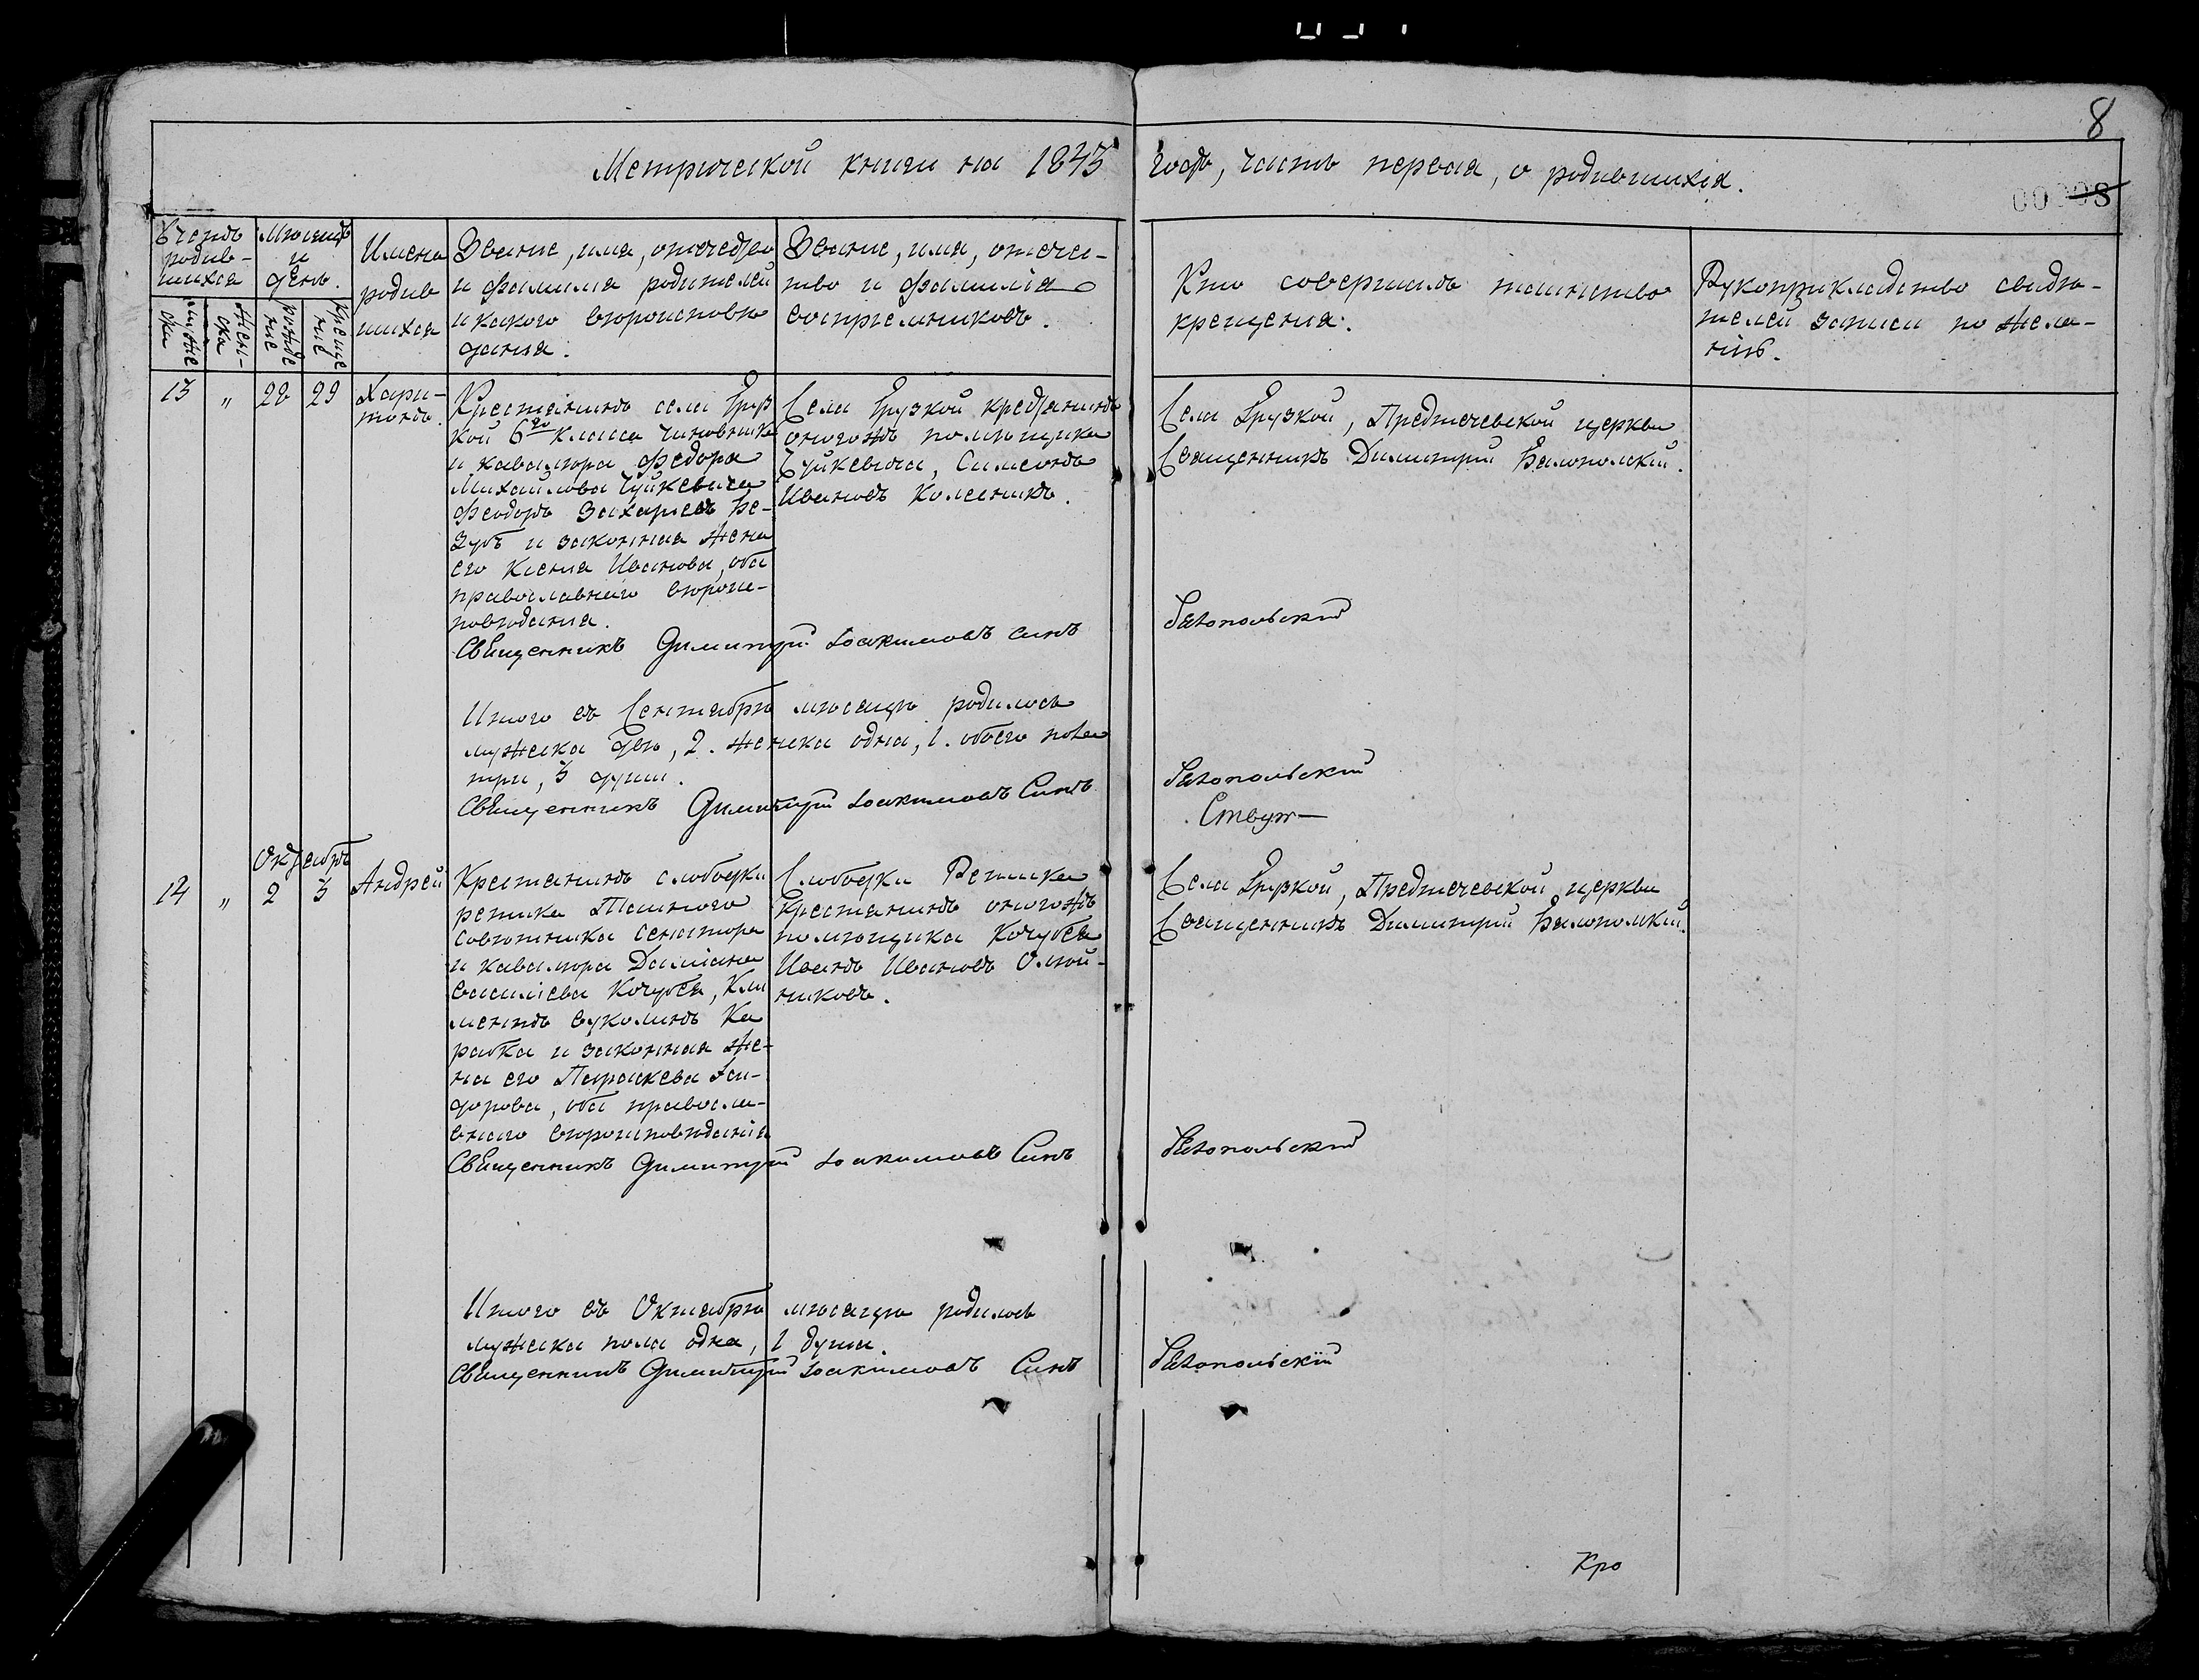 8
Метрической книги на 1843 годъ, часть первая, о родившихся.
00008
Счетъ родив-шихся
Мѣсяцъ и день.
Имена родив шихся
Званіе, имя, отечество
и фамилія родителей
и какого вѣроисповѣ
данія.
Званіе, имя, отече-
тво и фамилія
воспріемниковъ.
Кто совершалъ таинство
крещенія.
Рукоприкладство свидѣ-
телей записи по жела-
нію.
мужеска
женска
рожденіе
крещеніе
13 „ 28 29 Хари-
тонъ.
Крестьянинъ села Груз
кой 6го класса чиновника
и кавалера Федора
Михайлова Чуйкевича
Феодоръ Захаріевъ Бе-
зубъ и законная жена
его Ксенія Иванова, оба
православнаго вѣроис-
повѣданія.
Села Грузкой крестьянинъ
оногожъ помѣщика
Чуйкевича, Симеонъ
Ивановъ Колесникъ.
Села Грузкой, Предтечевской церкви
Священникъ Димитрій Бѣлопольскій.
Священникъ Димитрій Іоакимовъ Синъ Бѣлопольскій
Итого въ Сентябрѣ мѣсяцѣ родилось
мужеска два, 2. женска одна, 1. обоего пола
три, 3 души.
Священникъ Димитрій Іоакимовъ Синъ Бѣлопольскій
Октябрь
14 „ 2 3 Андрей
Крестьянинъ слободки
репика Тайного
Совѣтника сенатора
и кавалера Даміана
Василіева Кочубея, Кли
ментъ Вуколинъ Ка
рабка и законная же-
на его Параскева Іси-
дорова, оба правосла-
внаго вѣроисповѣданія
Слободки Репика
крестьянинъ оногожъ
помѣщика Кочубея
Иванъ Ивановъ Олій-
никовъ.
Села Грузкой, Предтечевской церкви
Священникъ Димитрій Бѣлопольскій.
Священникъ Димитрій Іоакимовъ Синъ Бѣлопольскій
Итого въ Октябрѣ мѣсяцѣ родилось
мужеска пола одна, 1 душа.
Священникъ Димитрій Іоакимовъ Синъ Бѣлопольскій
Кро